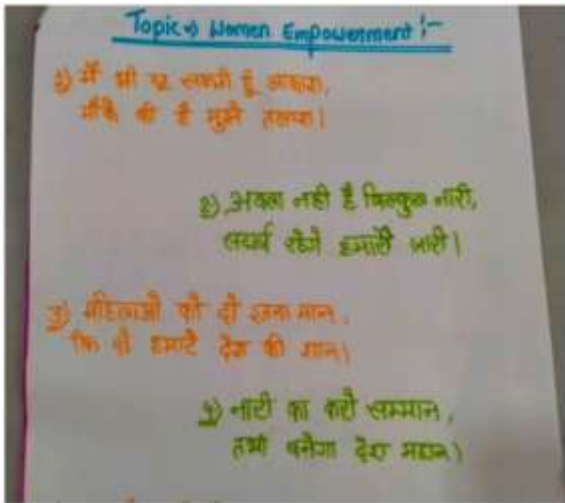 Topic → Women Empowerment :-
1) मैं भी छू सकती हूँ आकाश,
मौके की है मुझे तलाश।
2) अबला नही है बिल्कुल नारी,
संघर्ष रहेगे हमारे जारी।
3) महिलाओ को दो इतना मान,
कि वो हमारे देश की शान।
4) नारी का करो सम्मान,
तभी बनेगा देश महान।